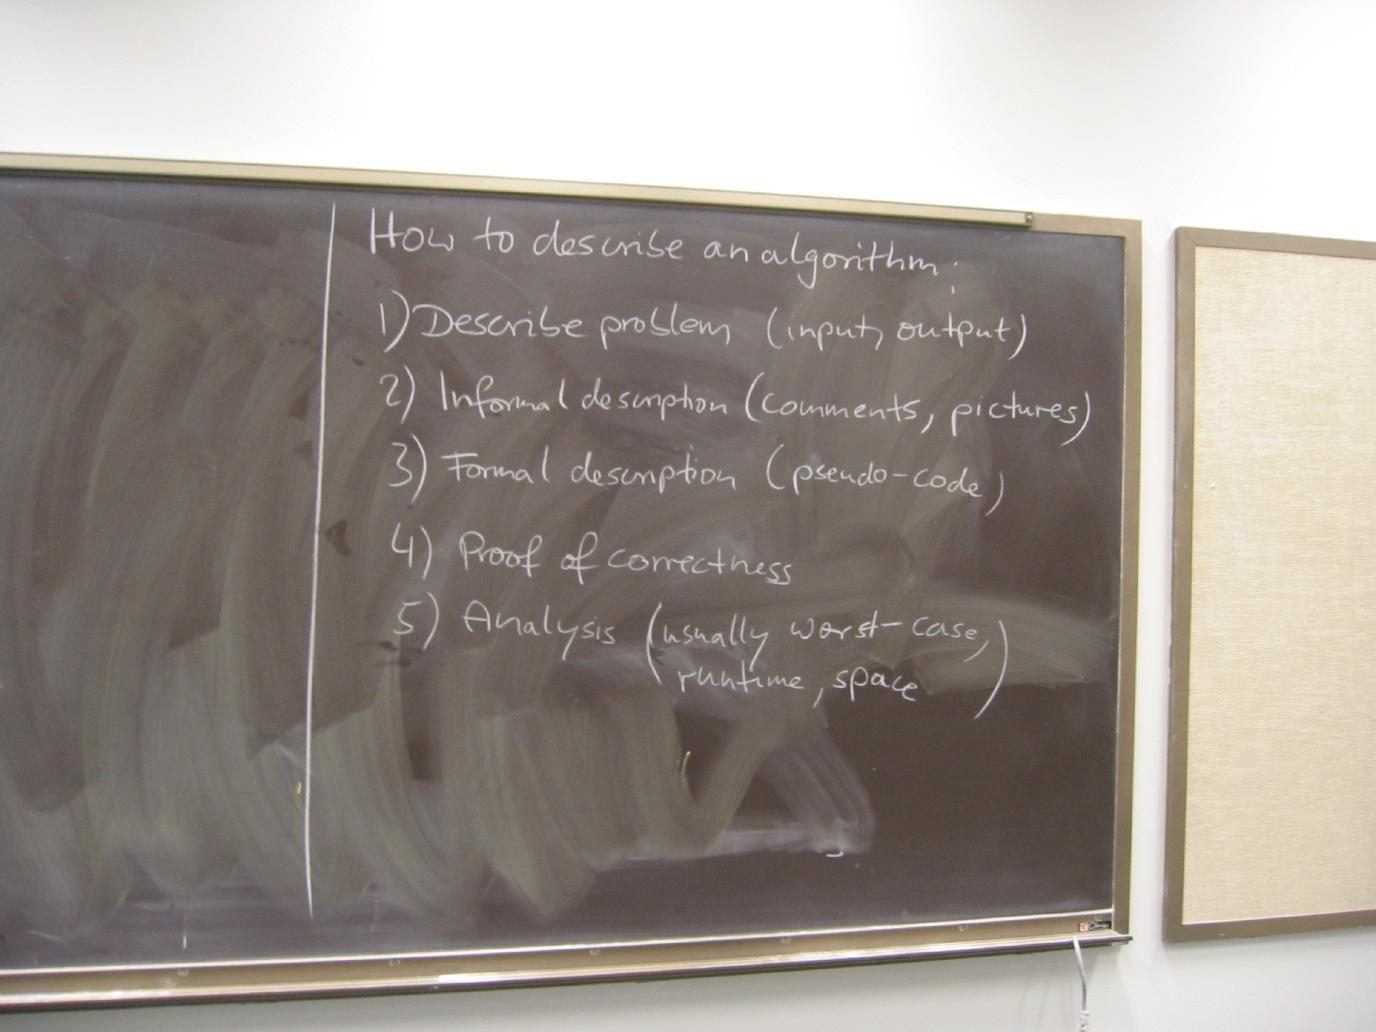 How to describe an algorithm:
1) Describe problem (input, output)
2) Informal description (comments, pictures)
3) Formal description (pseudo-code)
4) Proof of correctness
5) Analysis (usually worst-case,
runtime, space)